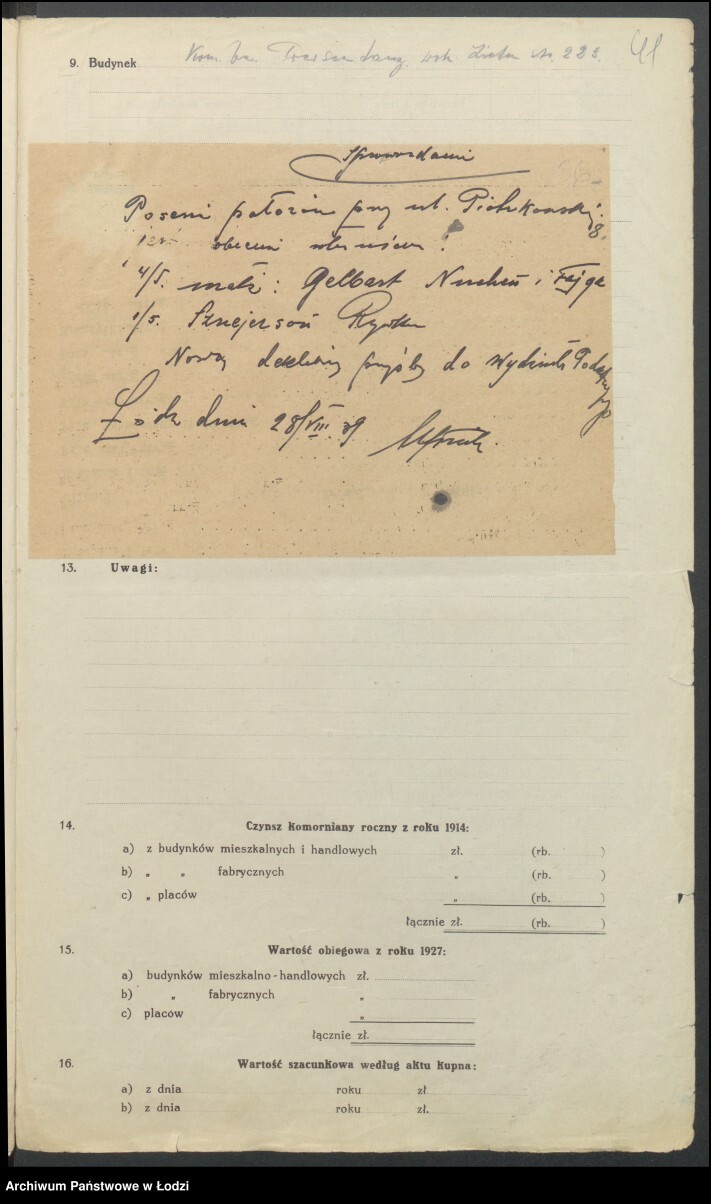 9. Budynek
41
Sprawozdanie
Posesji położon przy ul. Piotrkowskiej 8.
jest obecni
4/5. małż: Gelbart Nuchem i Fajga
1/5. Sznejerson Rywka
Nową do Wydziału Podatkowego
Łódź dnia 28/VIII 39
13. Uwagi:
14. Czynsz komorniany roczny z roku 1914:
a) z budynków mieszkalnych i handlowych zł. (rb. )
b) „ „ fabrycznych „ (rb. )
c) „ placów „ (rb. )
łącznie zł. (rb. )
15. Wartość obiegowa z roku 1927:
a) budynków mieszkalno-handlowych zł.
b) „ fabrycznych „
c) placów „
łącznie zł.
16. Wartość szacunkowa według aktu kupna:
a) z dnia roku zł
b) z dnia roku zł.
Archiwum Państwowe w Łodzi